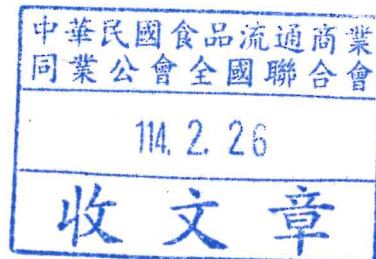 中華民國食品流通商業
同業公會全國聯合會
114. 2. 26
收文章